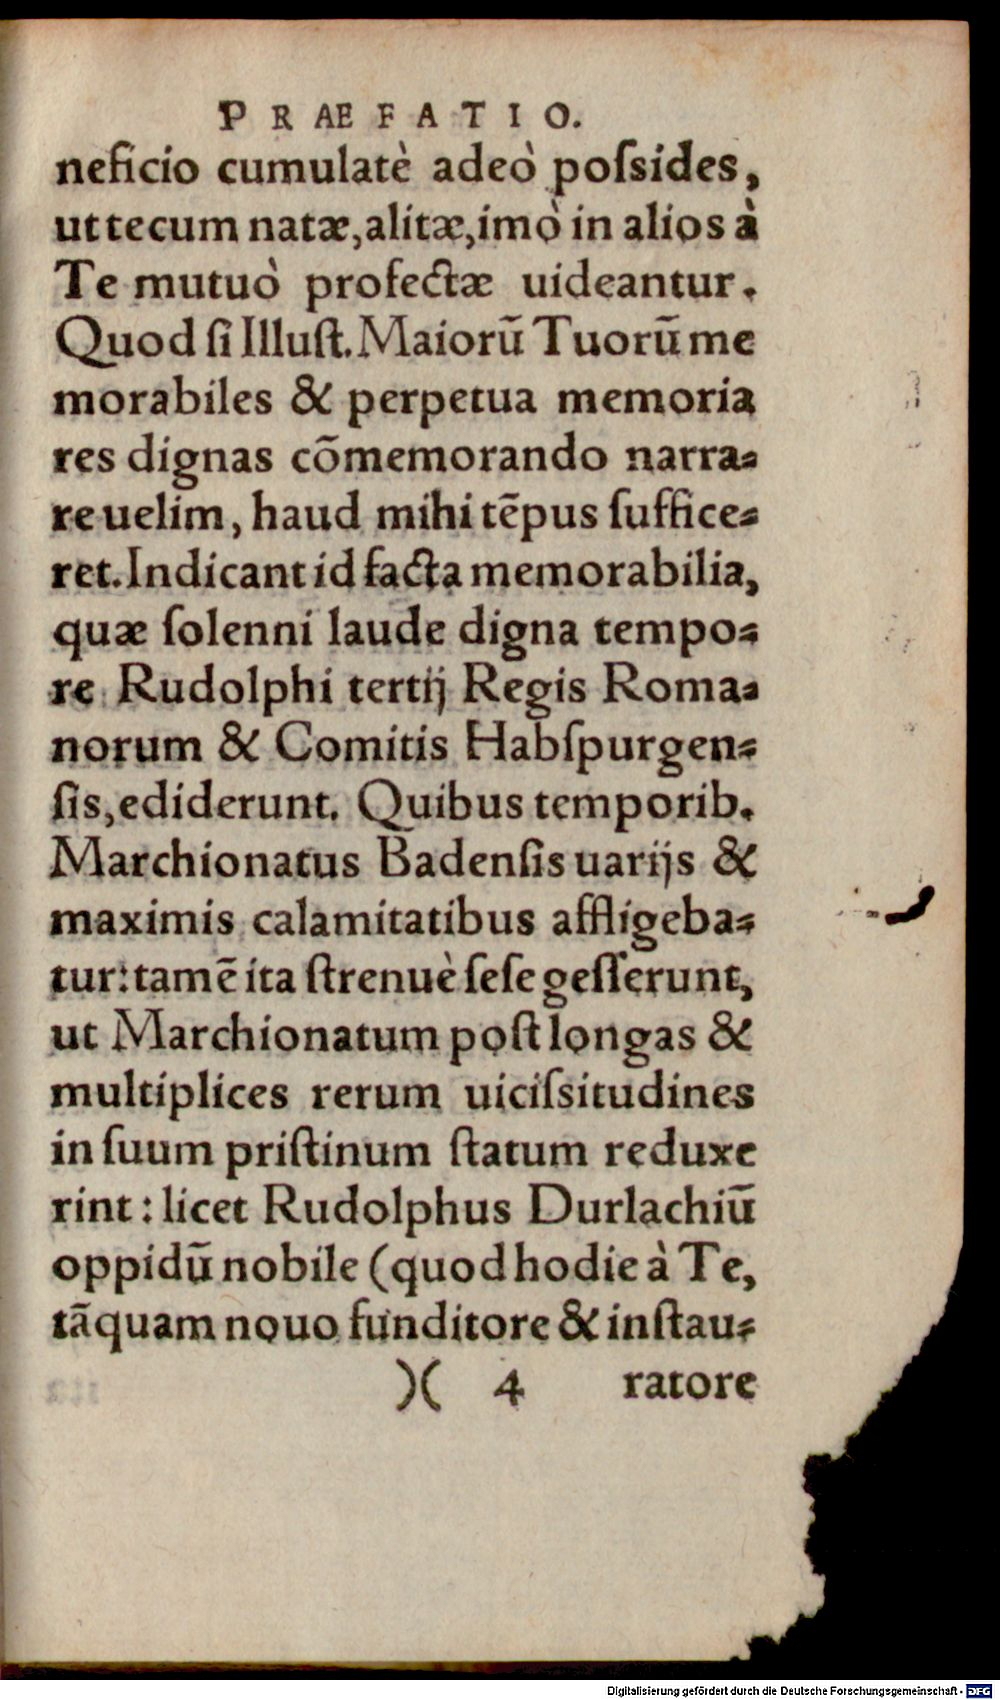 PRAEFATIO.
neficio cumulatè adeò poſsides,
ut tecum natæ, alitæ, imò in alios à
Te mutuò profectæ uideantur.
Quod ſi Illuſt. Maiorũ Tuorũ me
morabiles & perpetua memoria
res dignas cõmemorando narra⸗
re uelim, haud mihi tẽpus ſuffice⸗
ret. Indicant id facta memorabilia,
quæ ſolenni laude digna tempo⸗
re Rudolphi tertij Regis Roma⸗
norum & Comitis Habſpurgen⸗
ſis, ediderunt. Quibus temporib.
Marchionatus Badenſis uarijs &
maximis calamitatibus affligeba⸗
tur: tamẽ ita ſtrenuè ſeſe geſſerunt,
ut Marchionatum poſt longas &
multiplices rerum uiciſsitudines
in ſuum priſtinum ſtatum reduxe
rint: licet Rudolphus Durlachiũ
oppidũ nobile (quod hodie à Te,
tãquam nouo funditore & inſtau⸗
)( 4 ratore
Digitalisierung gefördert durch die Deutsche Forschungsgemeinschaft - DFG